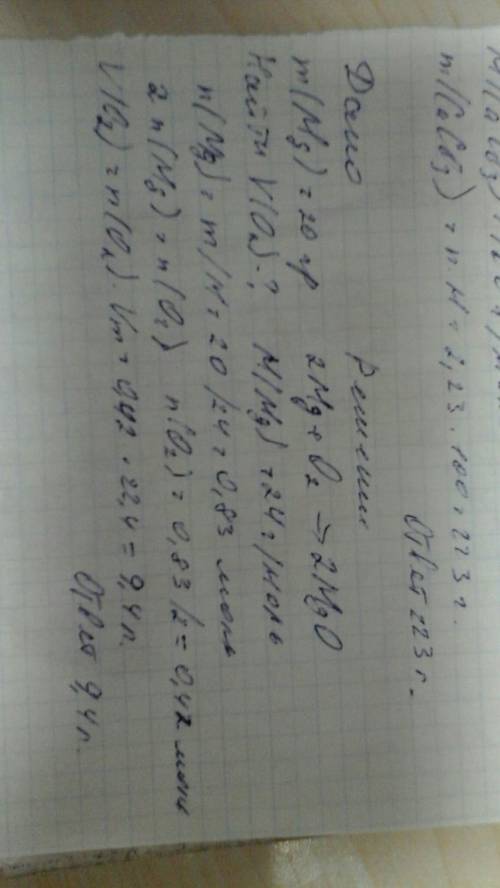 m(CaCO3) = n·M = 2,23·100 = 223 г.
Ответ 223 г.
Дано Решение
m(Mg) = 20 гр 2Mg + O2 → 2MgO
Найти V(O2)-? M(Mg) = 24 г/моль
n(Mg) = m/M = 20/24 = 0,83 моль
2 n(Mg) = n(O2) n(O2) = 0,83/2 = 0,42 моль
V(O2) = n(O2)·Vm = 0,42·22,4 = 9,4 л.
Ответ 9,4 л.